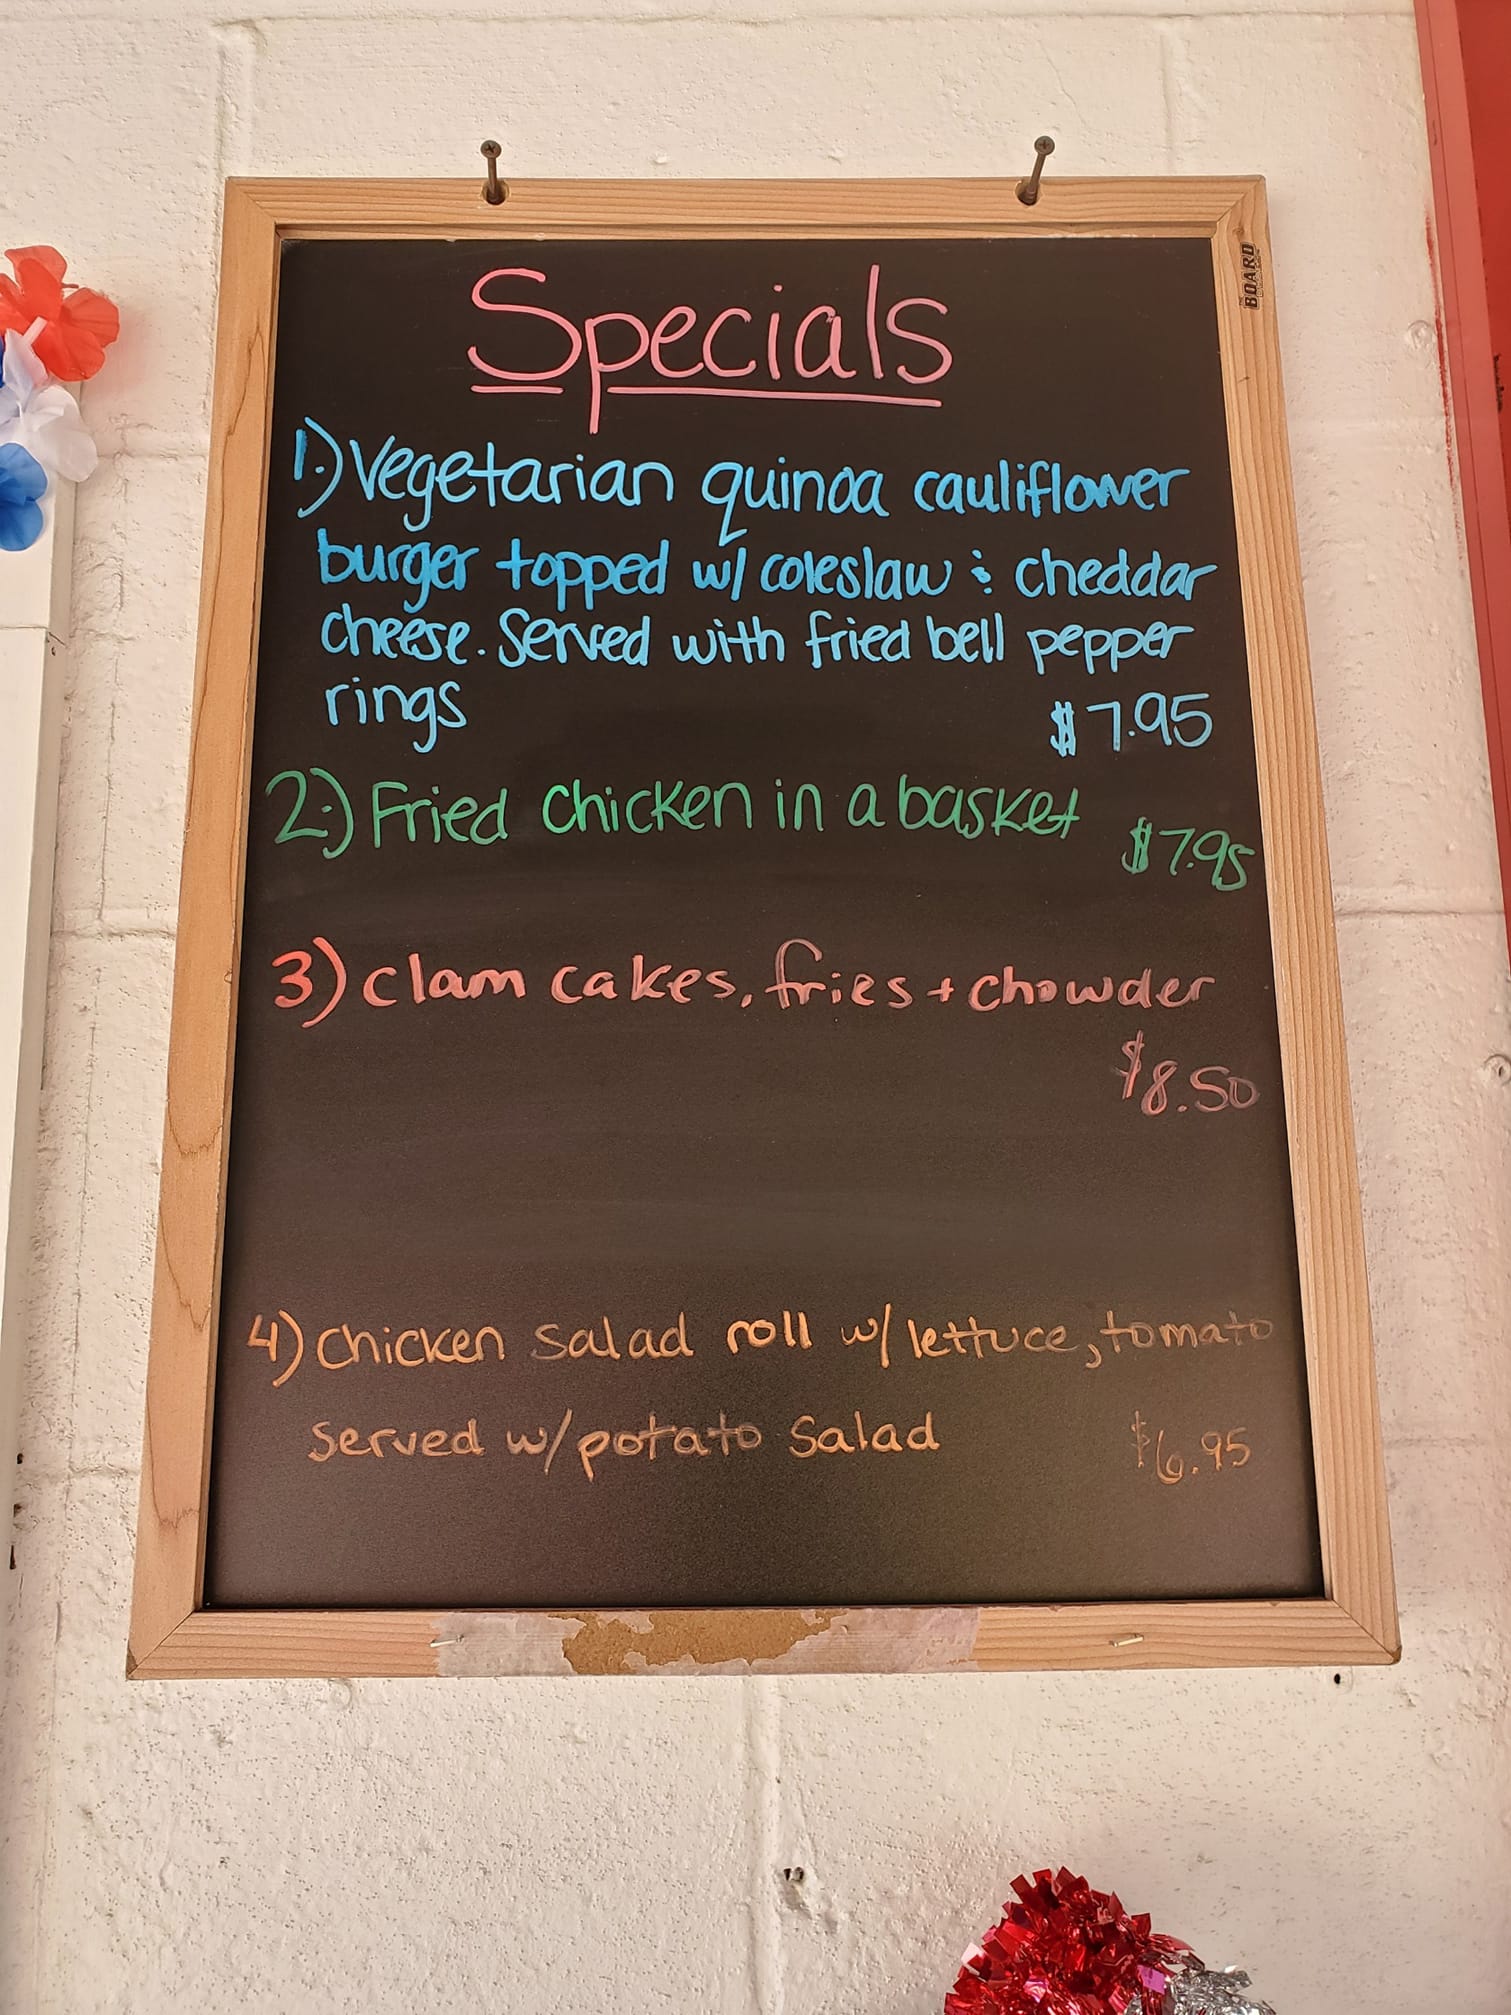 Specials
1.) Vegetarian quinoa cauliflower
burger topped w/ coleslaw & cheddar
cheese. Served with fried bell pepper
rings $7.95
2.) Fried chicken in a basket
$7.95
3) clam cakes, fries + chowder
$8.50
4) chicken salad roll w/ lettuce, tomato
served w/ potato salad $6.95
BOARD